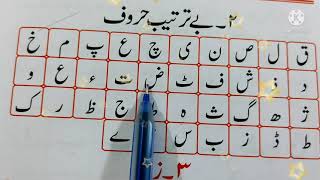 ۲۔ بے ترتیب حروف
ق ل ص ن ی چ ع پ م خ
د ذ ش ف ٹ ض ت ء غ و
ژ ھ گ ث ہ ج ظ ر ک
ط ڈ ز ب س ے
۳۔